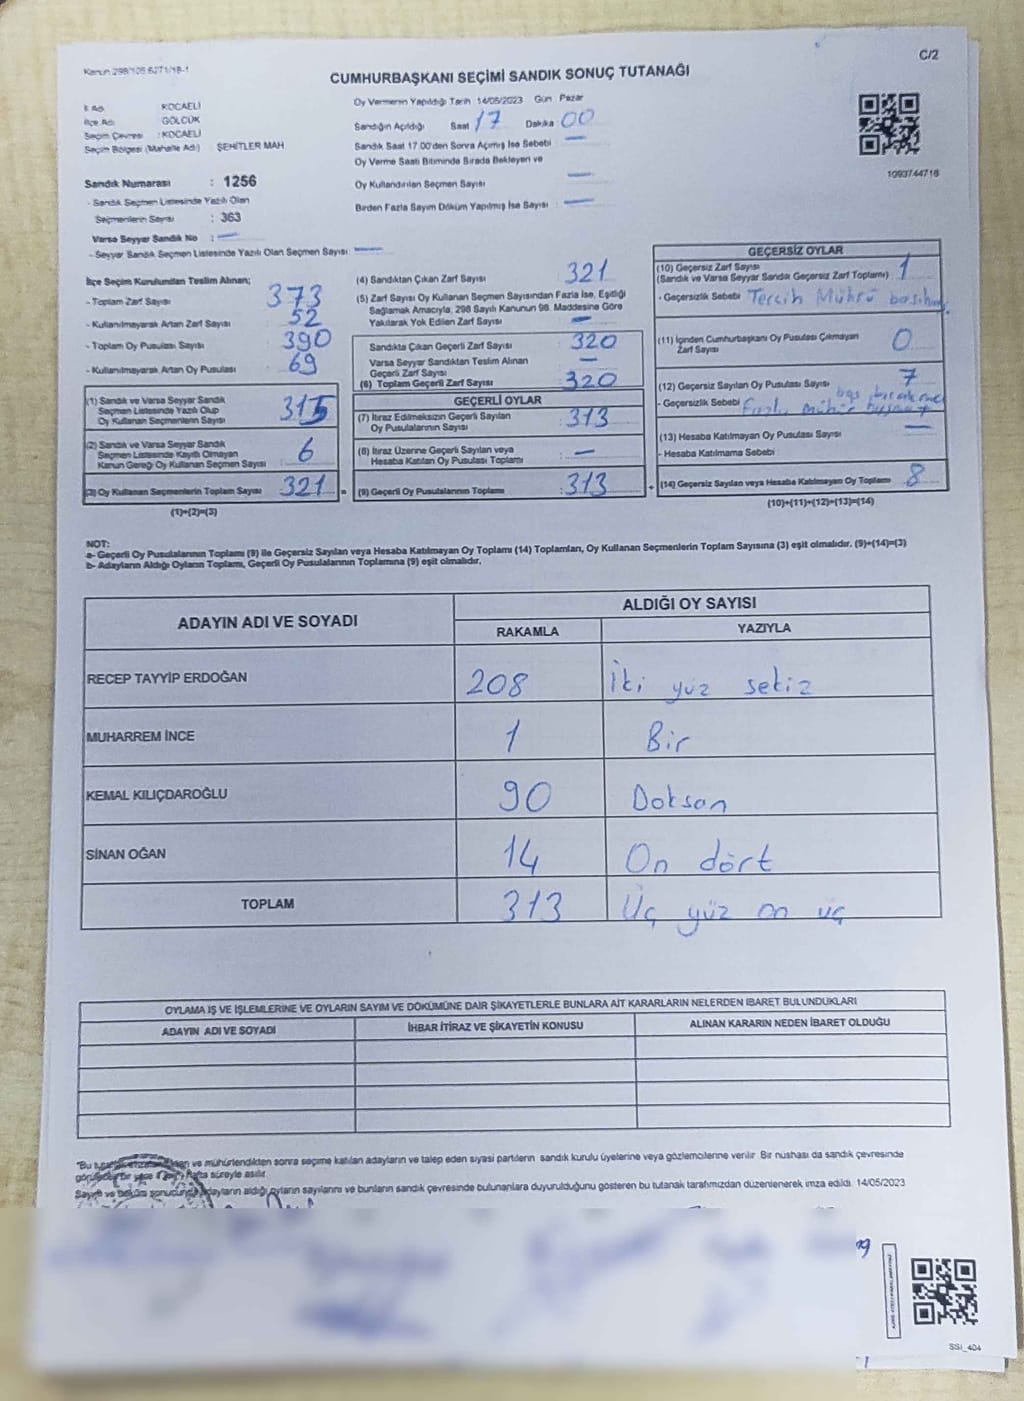 Kanun 298/105 6271/18-1
C/2
CUMHURBAŞKANI SEÇİMİ SANDIK SONUÇ TUTANAĞI
İl Adı KOCAELİ
İlçe Adı GÖLCÜK
Seçim Çevresi : KOCAELİ
Seçim Bölgesi (Mahalle Adı) ŞEHİTLER MAH
Sandık Numarası : 1256
- Sandık Seçmen Listesinde Yazılı Olan
Seçmenlerin Sayısı : 363
Varsa Seyyar Sandık No : —
- Seyyar Sandık Seçmen Listesinde Yazılı Olan Seçmen Sayısı : —
Oy Vermenin Yapıldığı Tarih 14/05/2023 Gün Pazar
Sandığın Açıldığı Saat 17 Dakika 00
Sandık Saat 17.00'den Sonra Açılmış İse Sebebi —
Oy Verme Saati Bitiminde Sırada Bekleyen ve
Oy Kullandırılan Seçmen Sayısı —
Birden Fazla Sayım Döküm Yapılmış İse Sayısı : —
1093744716
İlçe Seçim Kurulundan Teslim Alınan;
- Toplam Zarf Sayısı 373
- Kullanılmayarak Artan Zarf Sayısı 52
- Toplam Oy Pusulası Sayısı 390
- Kullanılmayarak Artan Oy Pusulası 69
(1) Sandık ve Varsa Seyyar Sandık
Seçmen Listesinde Yazılı Olup
Oy Kullanan Seçmenlerin Sayısı 315
(2) Sandık ve Varsa Seyyar Sandık
Seçmen Listesinde Kayıtlı Olmayan
Kanun Gereği Oy Kullanan Seçmen Sayısı 6
(3) Oy Kullanan Seçmenlerin Toplam Sayısı 321 =
(1)+(2)=(3)
(4) Sandıktan Çıkan Zarf Sayısı 321
(5) Zarf Sayısı Oy Kullanan Seçmen Sayısından Fazla İse, Eşitliği
Sağlamak Amacıyla, 298 Sayılı Kanunun 98. Maddesine Göre
Yakılarak Yok Edilen Zarf Sayısı —
Sandıkta Çıkan Geçerli Zarf Sayısı 320
Varsa Seyyar Sandıktan Teslim Alınan
Geçerli Zarf Sayısı —
(6) Toplam Geçerli Zarf Sayısı 320
GEÇERLİ OYLAR
(7) İtiraz Edilmeksizin Geçerli Sayılan
Oy Pusulalarının Sayısı : 313
(8) İtiraz Üzerine Geçerli Sayılan veya
Hesaba Katılan Oy Pusulası Toplamı : —
(9) Geçerli Oy Pusulalarının Toplamı : 313 +
GEÇERSİZ OYLAR
(10) Geçersiz Zarf Sayısı
(Sandık ve Varsa Seyyar Sandık Geçersiz Zarf Toplamı) : 1
- Geçersizlik Sebebi : Tercih Mührü
(11) İçinden Cumhurbaşkanı Oy Pusulası Çıkmayan
Zarf Sayısı 0
(12) Geçersiz Sayılan Oy Pusulası Sayısı 7
- Geçersizlik Sebebi Fazla mühür
(13) Hesaba Katılmayan Oy Pusulası Sayısı —
- Hesaba Katılmama Sebebi
(14) Geçersiz Sayılan veya Hesaba Katılmayan Oy Toplamı 8
(10)+(11)+(12)+(13)=(14)
NOT:
a- Geçerli Oy Pusulalarının Toplamı (9) ile Geçersiz Sayılan veya Hesaba Katılmayan Oy Toplamı (14) Toplamları, Oy Kullanan Seçmenlerin Toplam Sayısına (3) eşit olmalıdır. (9)+(14)=(3)
b- Adayların Aldığı Oyların Toplamı, Geçerli Oy Pusulalarının Toplamına (9) eşit olmalıdır.
ADAYIN ADI VE SOYADI
ALDIĞI OY SAYISI
RAKAMLA YAZIYLA
RECEP TAYYİP ERDOĞAN 208 İki yüz sekiz
MUHARREM İNCE 1 Bir
KEMAL KILIÇDAROĞLU 90 Doksan
SİNAN OĞAN 14 On dört
TOPLAM 313 Üç yüz on üç
OYLAMA İŞ VE İŞLEMLERİNE VE OYLARIN SAYIM VE DÖKÜMÜNE DAİR ŞİKAYETLERLE BUNLARA AİT KARARLARIN NELERDEN İBARET BULUNDUKLARI
ADAYIN ADI VE SOYADI İHBAR İTİRAZ VE ŞİKAYETİN KONUSU ALINAN KARARIN NEDEN İBARET OLDUĞU
"Bu ve mühürlendikten sonra seçime katılan adayların ve talep eden siyasi partilerin sandık kurulu üyelerine veya gözlemcilerine verilir. Bir nüshası da sandık çevresinde
hafta süreyle asılır.
Sayım ve döküm sonucunda adayların aldığı oyların sayılarını ve bunların sandık çevresinde bulunanlara duyurulduğunu gösteren bu tutanak tarafımızdan düzenlenerek imza edildi. 14/05/2023
SSI_404